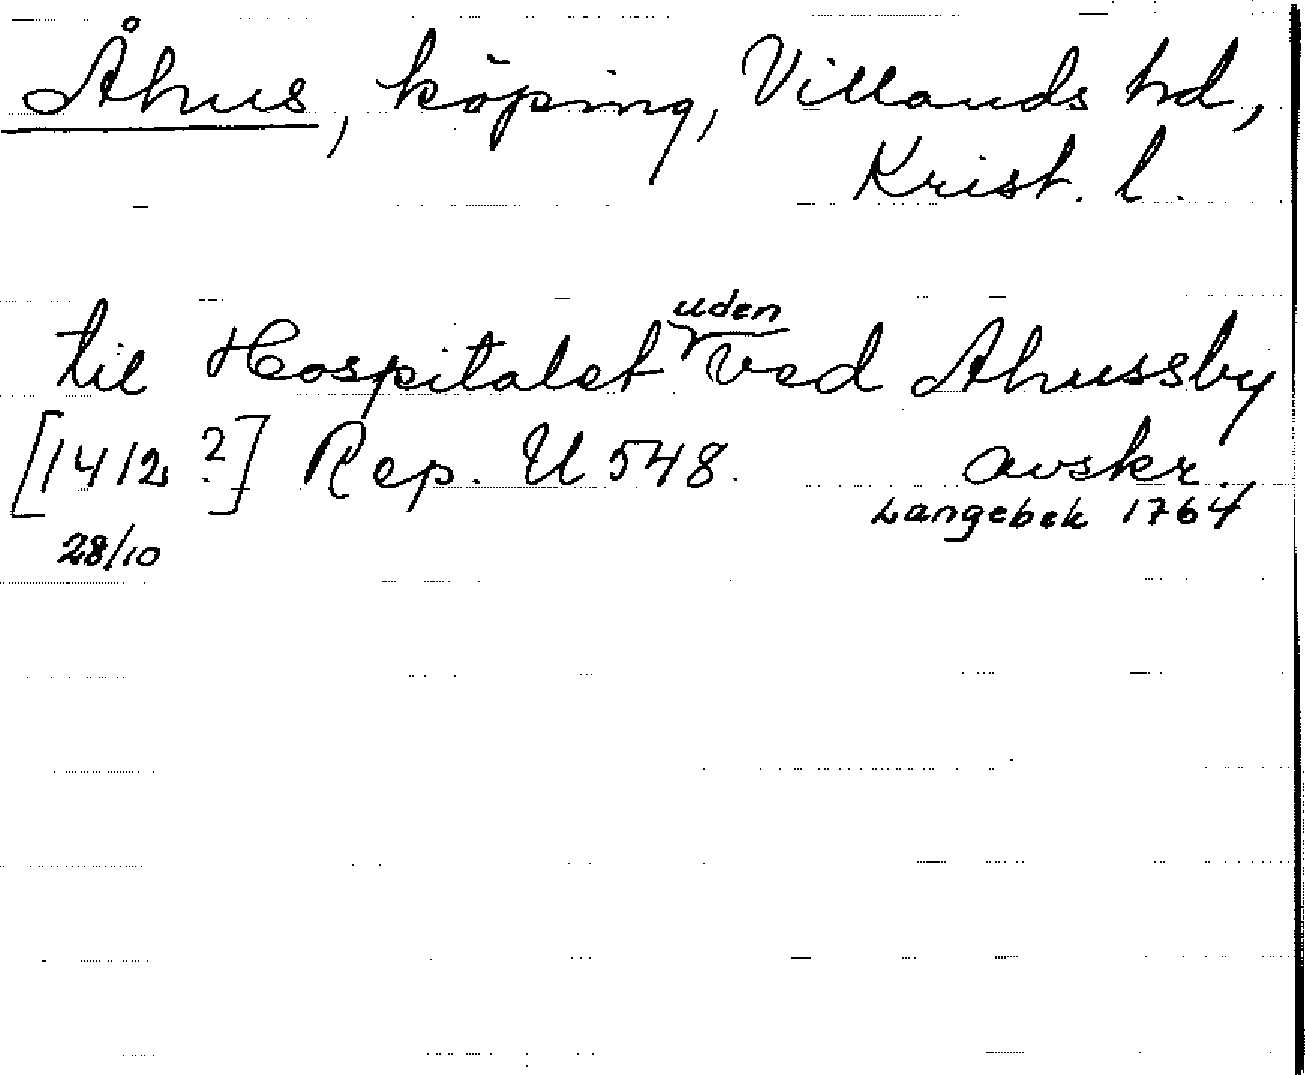 Åhus, köping, Villands hd,
Krist. l.
til Hospitalet uden ved Ahussby
[1412 ?] Rep. U 548. avskr.
28/10 Langebek 1764